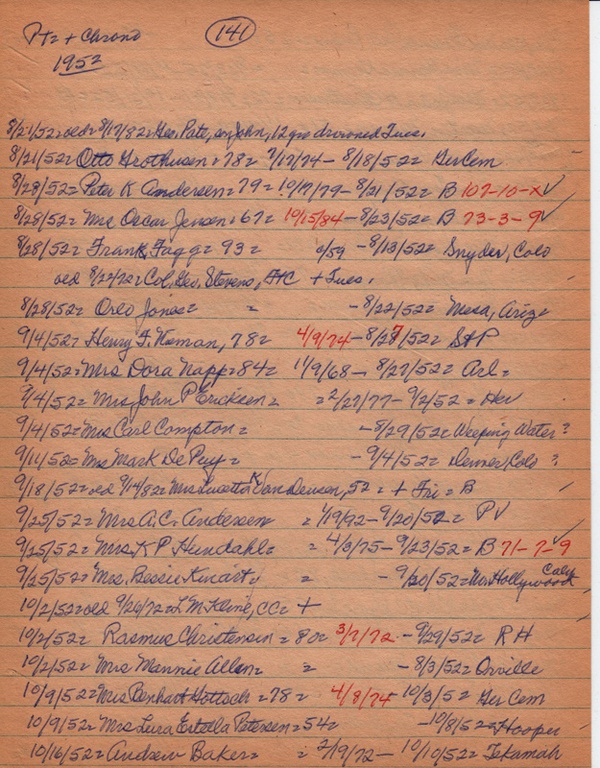 Ptz + Chrono 141
1952
8/21/52= old= 8/17/82= Geo. Pate, son John, 12 yrs drowned Tues.
8/21/52= Otto Grothusen = 78= 7/17/74 - 8/18/52= Ger Cem
8/28/52= Peter K Andersen= 79= 10/9/79- 8/21/52= B 107-10-X ✓
8/28/52= Mrs Oscar Jensen= 67= 10/15/84-8/23/52= B 73-3-9 ✓
8/28/52= Frank Fagg= 93= 6/59 - 8/13/52= Snyder, Colo
old 8/22/72= Col. Geo. Stevens, + Tues.
8/28/52= Oreo Jones= = -8/22/52= Mesa, Ariz
9/4/52= Henry F. Wieman, 78= 4/9/74-8/27/52= StP
9/4/52= Mrs Dora Napp= 84= 11/9/68- 8/27/52= Arl=
9/4/52= Mrs John P Ericksen= =2/27/77- 9/2/52= Her
9/4/52= Mrs Carl Compton= -8/29/52= Weeping Water?
9/11/52= Mrs Mark De Puy= -9/4/52= Denver, Colo ?
9/18/52= old 9/14/82= Mrs Luvetta K Van Deusen, 52 = + Fri = B
9/25/52= Mrs A.C. Andersen = 1/19/92- 9/20/52= P ✓
9/25/52= Mrs. K P Hendahl= = 4/3/75-9/23/52= B 71-7-9 ✓
9/25/52= Mrs. Bessie Kinart, = - 9/20/52= No. Hollywood Calif
10/2/52= old 9/26/72= L M Kline, CC= +
10/2/52= Rasmus Christensen = 80= 3/7/72 - 9/29/52= R H
10/2/52= Mrs Mannie Allen= = - 8/3/52= Orville
10/9/52= Mrs Benhart Hottsch = 78= 4/8/74-10/3/52= Ger Cem
10/9/52= Mrs Lura Estella Petersen= 54= -10/8/52=Hooper
10/16/52= Andrew Baker= = 2/19/72- 10/10/52= Tekamah